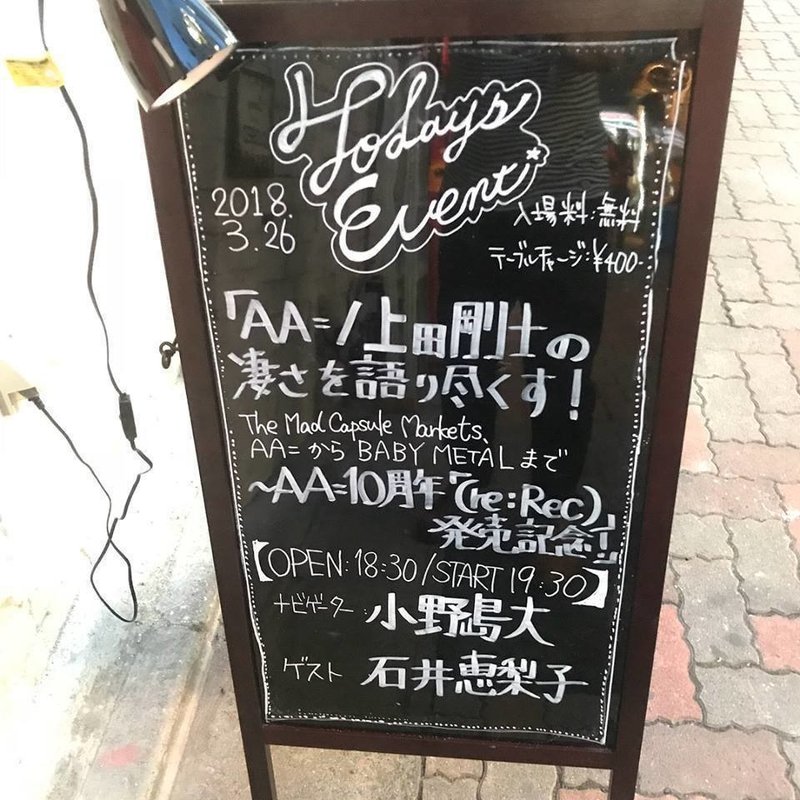 Todays
Event
2018.
3.26
入場料:無料
テーブルチャージ:¥400-
「AA=/上田剛士の
凄さを語り尽くす!
The Mad Capsule Markets、
AA=からBABY METALまで
~AA=10周年『(re:Rec)』
発売記念!」
【OPEN:18:30/START 19:30】
ナビゲーター 小野島大
ゲスト 石井恵梨子